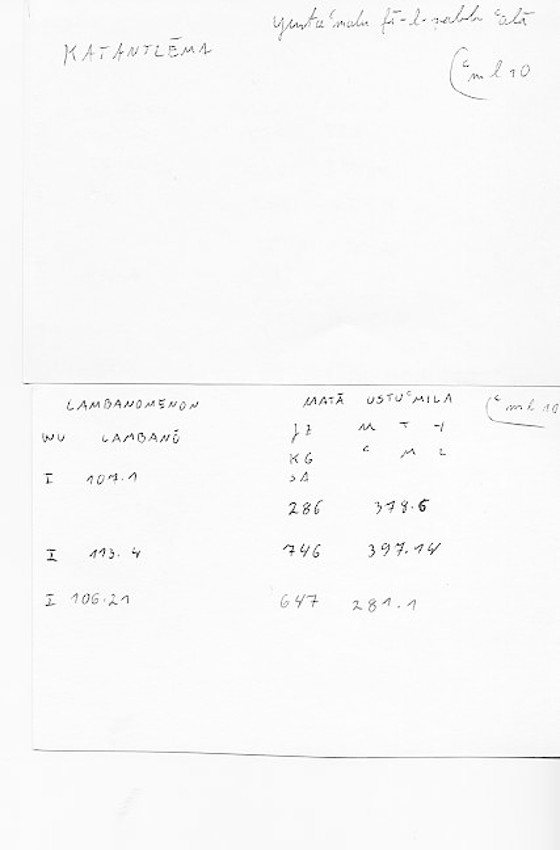 KATANTLĒMA
yustaʿmalu fī-l-ṣabb ʿalā
(ʿml 10
LAMBANOMENON MATĀ USTUʿMILA (ʿml 10
WU LAMBANŌ JZ M T Y
KG ʿ M L
I 107.1 SA
286 378.6
I 113.4 746 397.14
I 106.21 647 281.1